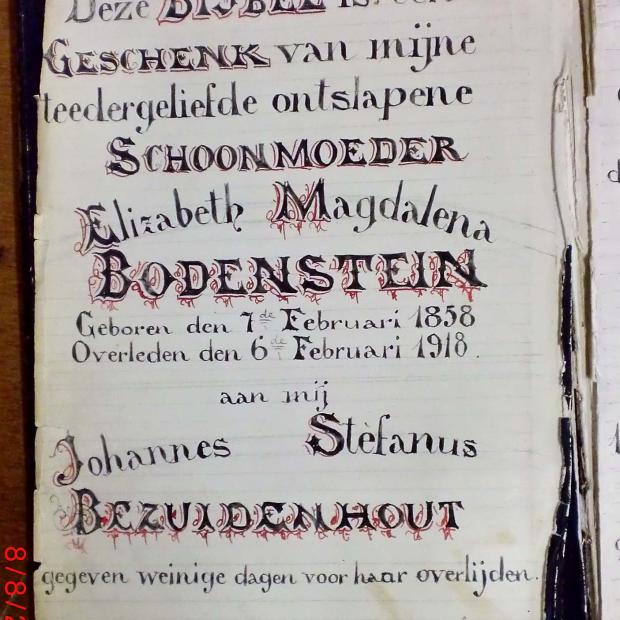 Deze BIJBEL is een
GESCHENK van mijne
teedergeliefde ontslapene
SCHOONMOEDER
Elizabeth Magdalena
BODENSTEIN
Geboren den 7de Februari 1858
Overleden den 6de Februari 1918.
aan mij
Johannes Stèfanus
BEZUIDENHOUT
gegeven weinige dagen voor haar overlijden.
8/8/2